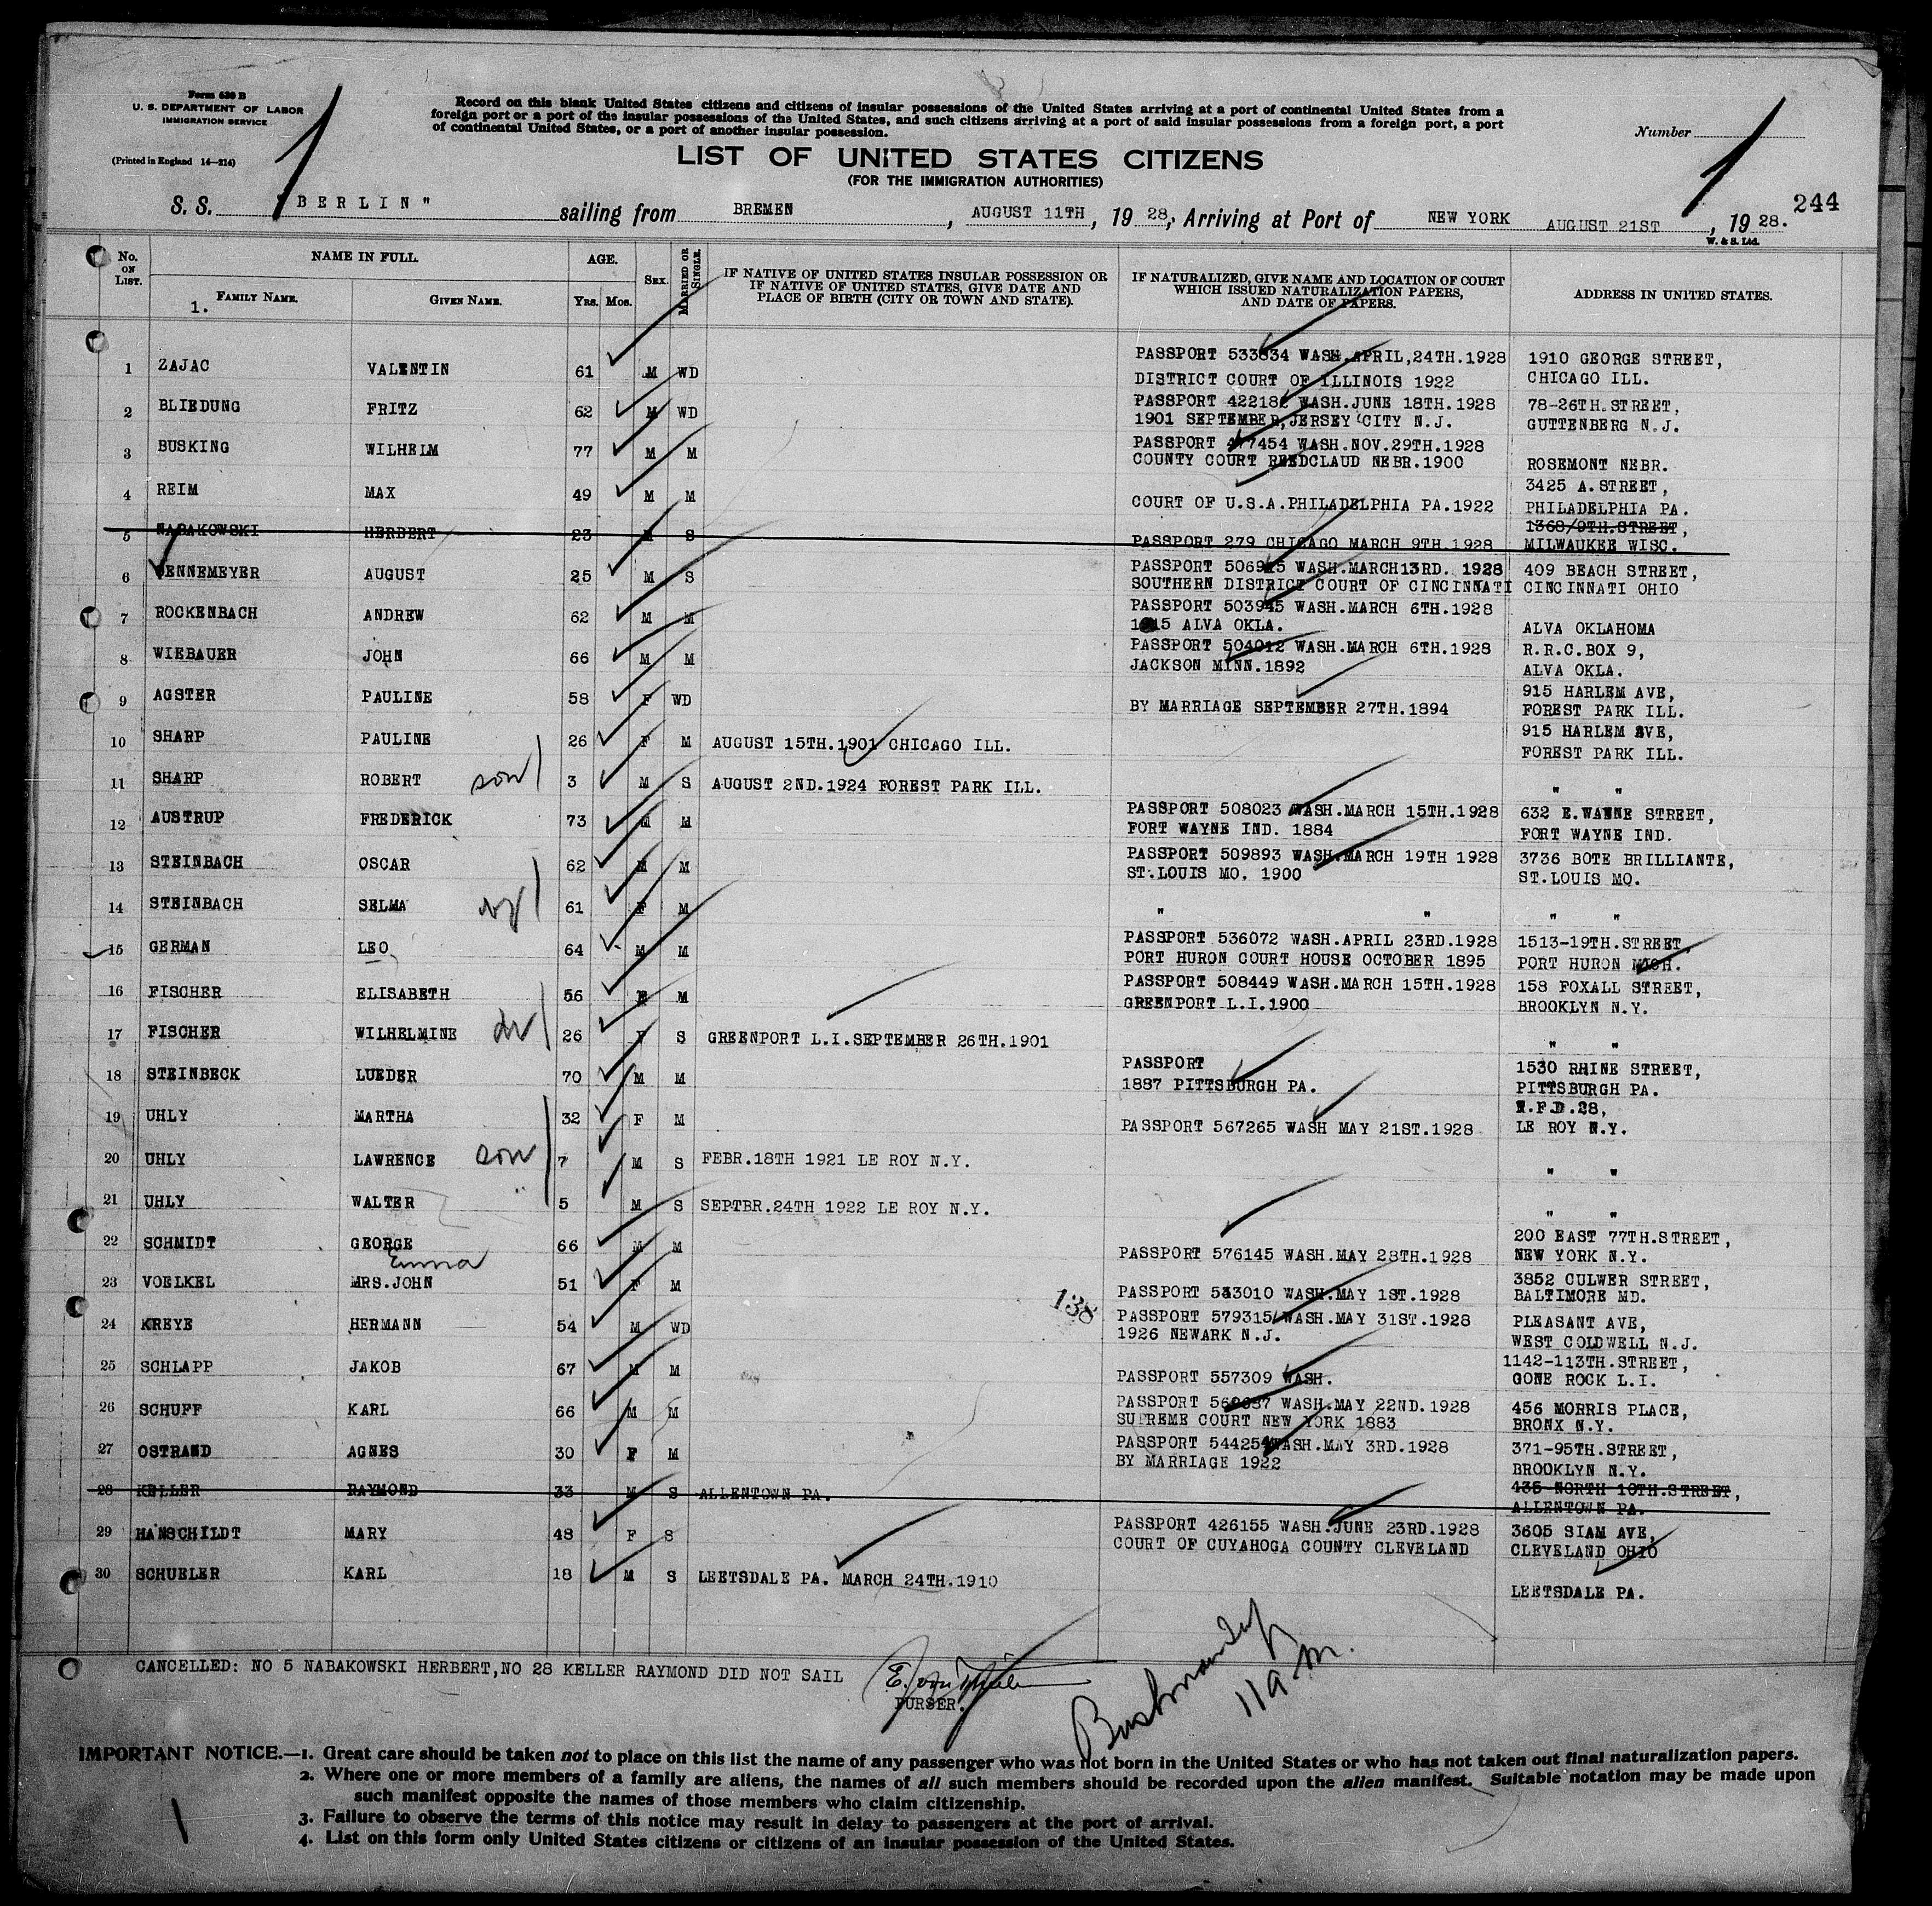 Form 630 B
U. S. DEPARTMENT OF LABOR
IMMIGRATION SERVICE
(Printed in England 14—214)
Record on this blank United States citizens and citizens of insular possessions of the United States arriving at a port of continental United States from a
foreign port or a port of the insular possessions of the United States, and such citizens arriving at a port of said insular possessions from a foreign port, a port
of continental United States, or a port of another insular possession.
Number
LIST OF UNITED STATES CITIZENS
(FOR THE IMMIGRATION AUTHORITIES)
1
1
244
S. S. "BERLIN" sailing from BREMEN, AUGUST 11TH, 1928, Arriving at Port of NEW YORK AUGUST 21ST, 1928.
W. & S. Ltd.
No. ON LIST. NAME IN FULL. AGE. SEX. MARRIED OR SINGLE. IF NATIVE OF UNITED STATES INSULAR POSSESSION OR IF NATIVE OF UNITED STATES, GIVE DATE AND PLACE OF BIRTH (CITY OR TOWN AND STATE). IF NATURALIZED, GIVE NAME AND LOCATION OF COURT WHICH ISSUED NATURALIZATION PAPERS, AND DATE OF PAPERS. ADDRESS IN UNITED STATES.
FAMILY NAME. GIVEN NAME. YRS. MOS.
1.
1 ZAJAC VALENTIN 61 M WD PASSPORT 533834 WASH.APRIL,24TH.1928 1910 GEORGE STREET,
DISTRICT COURT OF ILLINOIS 1922 CHICAGO ILL.
2 BLIEDUNG FRITZ 62 M WD PASSPORT 422182 WASH.JUNE 18TH.1928 78-26TH.STREET,
1901 SEPTEMBER,JERSEY CITY N.J. GUTTENBERG N.J.
3 BUSKING WILHELM 77 M M PASSPORT 477454 WASH.NOV.29TH.1928
COUNTY COURT REEDCLAUD NEBR.1900 ROSEMONT NEBR.
4 REIM MAX 49 M M 3425 A.STREET,
COURT OF U.S.A.PHILADELPHIA PA.1922 PHILADELPHIA PA.
5 NABAKOWSKI HERBERT 23 M S 1368/9TH.STREET,
PASSPORT 279 CHICAGO MARCH 9TH.1928 MILWAUKEE WISC.
6 ENNEMEYER AUGUST 25 M S PASSPORT 506915 WASH.MARCH13RD. 1928 409 BEACH STREET,
SOUTHERN DISTRICT COURT OF CINCINNATI CINCINNATI OHIO
7 ROCKENBACH ANDREW 62 M M PASSPORT 503945 WASH.MARCH 6TH.1928
1915 ALVA OKLA. ALVA OKLAHOMA
8 WIEBAUER JOHN 66 M M PASSPORT 504012 WASH.MARCH 6TH.1928 R.R.C.BOX 9,
JACKSON MINN.1892 ALVA OKLA.
9 AGSTER PAULINE 58 F WD 915 HARLEM AVE,
BY MARRIAGE SEPTEMBER 27TH.1894 FOREST PARK ILL.
10 SHARP PAULINE 26 F M AUGUST 15TH.1901 CHICAGO ILL. 915 HARLEM AVE,
FOREST PARK ILL.
11 SHARP ROBERT son 3 M S AUGUST 2ND.1924 FOREST PARK ILL. " "
12 AUSTRUP FREDERICK 73 M M PASSPORT 508023 WASH.MARCH 15TH.1928 632 E.WAYNE STREET,
FORT WAYNE IND. 1884 FORT WAYNE IND.
13 STEINBACH OSCAR 62 M M PASSPORT 509893 WASH.MARCH 19TH 1928 3736 BOTE BRILLIANTE,
ST.LOUIS MO. 1900 ST.LOUIS MO.
14 STEINBACH SELMA wf 61 F M " " " "
15 GERMAN LEO 64 M M PASSPORT 536072 WASH.APRIL 23RD.1928 1513-19TH.STREET
PORT HURON COURT HOUSE OCTOBER 1895 PORT HURON MICH.
16 FISCHER ELISABETH 56 F M PASSPORT 508449 WASH.MARCH 15TH.1928 158 FOXALL STREET,
GREENPORT L.I.1900 BROOKLYN N.Y.
17 FISCHER WILHELMINE dr 26 F S GREENPORT L.I.SEPTEMBER 26TH.1901 " "
18 STEINBECK LUEDER 70 M M PASSPORT 1530 RHINE STREET,
1887 PITTSBURGH PA. PITTSBURGH PA.
19 UHLY MARTHA 32 F M R.F.D.28,
PASSPORT 567265 WASH MAY 21ST.1928 LE ROY N.Y.
20 UHLY LAWRENCE son 7 M S FEBR.18TH 1921 LE ROY N.Y. " "
21 UHLY WALTER 5 M S SEPTBR.24TH 1922 LE ROY N.Y. " "
22 SCHMIDT GEORGE 66 M M 200 EAST 77TH.STREET,
PASSPORT 576145 WASH.MAY 28TH.1928 NEW YORK N.Y.
Emma
23 VOELKEL MRS.JOHN 51 F M 3852 CULWER STREET,
PASSPORT 543010 WASH.MAY 1ST.1928 BALTIMORE MD.
138
24 KREYE HERMANN 54 M WD PASSPORT 579315 WASH.MAY 31ST.1928 PLEASANT AVE,
1926 NEWARK N.J. WEST COLDWELL N.J.
25 SCHLAPP JAKOB 67 M M 1142-113TH.STREET,
PASSPORT 557309 WASH. GONE ROCK L.I.
26 SCHUFF KARL 66 M M PASSPORT WASH.MAY 22ND.1928 456 MORRIS PLACE,
SUPREME COURT NEW YORK 1883 BRONX N.Y.
27 OSTRAND AGNES 30 F M PASSPORT 544254 WASH.MAY 3RD.1928 371-95TH.STREET,
BY MARRIAGE 1922 BROOKLYN N.Y.
28 KELLER RAYMOND 33 M S ALLENTOWN PA. 435 NORTH 10TH.STREET,
ALLENTOWN PA.
29 HANSCHILDT MARY 48 F S PASSPORT 426155 WASH.JUNE 23RD.1928 3605 SIAM AVE,
COURT OF CUYAHOGA COUNTY CLEVELAND CLEVELAND OHIO
30 SCHUELER KARL 18 M S LEETSDALE PA. MARCH 24TH.1910
LEETSDALE PA.
CANCELLED: NO 5 NABAKOWSKI HERBERT,NO 28 KELLER RAYMOND DID NOT SAIL
PURSER.
11 am.
IMPORTANT NOTICE.—1. Great care should be taken not to place on this list the name of any passenger who was not born in the United States or who has not taken out final naturalization papers.
2. Where one or more members of a family are aliens, the names of all such members should be recorded upon the alien manifest. Suitable notation may be made upon
such manifest opposite the names of those members who claim citizenship.
3. Failure to observe the terms of this notice may result in delay to passengers at the port of arrival.
4. List on this form only United States citizens or citizens of an insular possession of the United States.